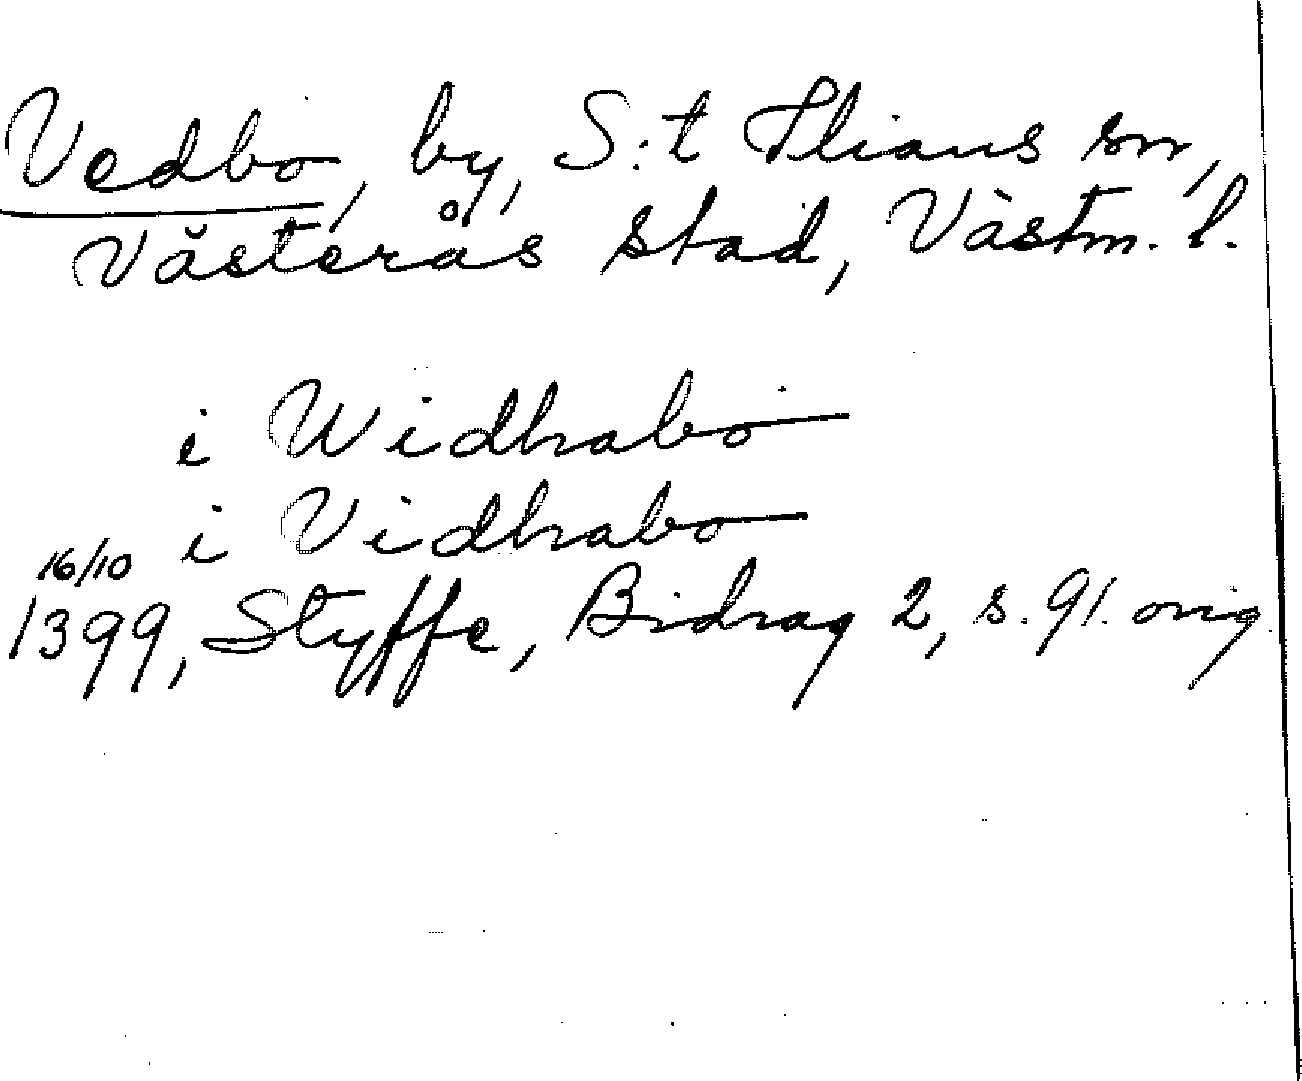 Vedbo, by, S:t Ilians sn,
Västerås stad, Västm. l.
i Widhabo
i Vidhabo
16/10
1399, Styffe, Bidrag 2, s. 91. orig.